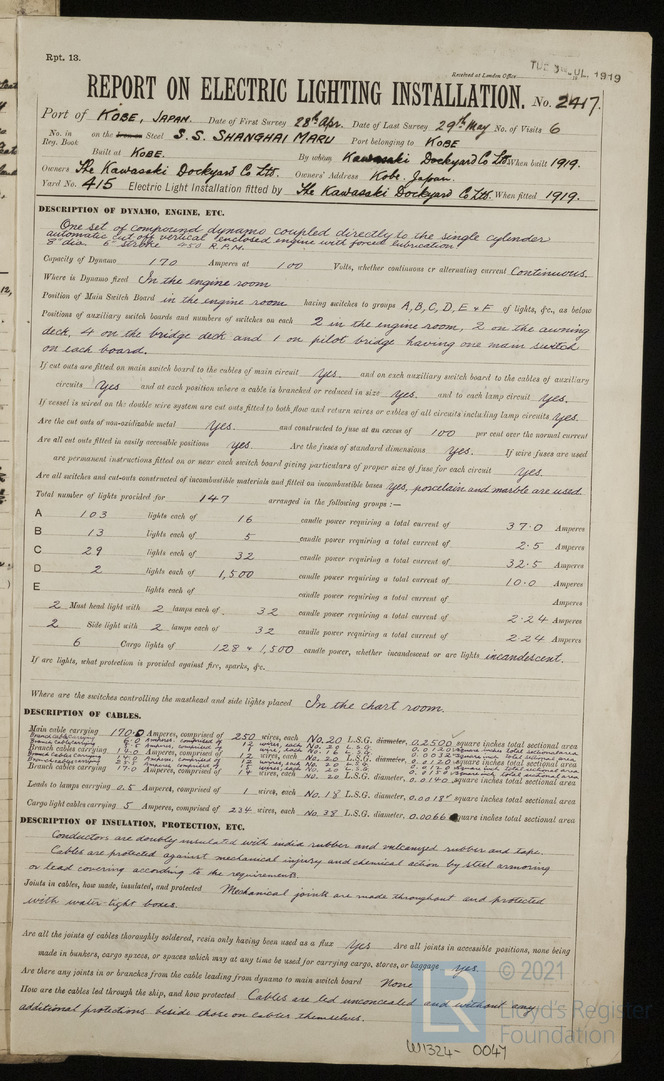 Rpt. 13.
Received at London Office TUE JUL. 1919
REPORT ON ELECTRIC LIGHTING INSTALLATION. No. 2417.
Port of KOBE, JAPAN. Date of First Survey 28th Apr. Date of Last Survey 29th May No. of Visits 6
No. in Reg. Book on the Iron or Steel S.S. SHANGHAI MARU Port belonging to KOBE
Built at KOBE. By whom Kawasaki Dockyard Co Ltd When built 1919.
Owners The Kawasaki Dockyard Co Ltd. Owners' Address Kobe, Japan.
Yard No. 415 Electric Light Installation fitted by The Kawasaki Dockyard Co Ltd. When fitted 1919.
DESCRIPTION OF DYNAMO, ENGINE, ETC.
One set of compound dynamo coupled directly to the single cylinder
automatic cut off vertical enclosed engine with forced lubrication
8" dia. 6" stroke 450 R.P.M.
Capacity of Dynamo 170 Amperes at 100 Volts, whether continuous or alternating current Continuous.
Where is Dynamo fixed In the engine room
Position of Main Switch Board in the engine room having switches to groups A, B, C, D, E & F of lights, &c., as below
Positions of auxiliary switch boards and numbers of switches on each 2 in the engine room, 2 on the awning
deck, 4 on the bridge deck and 1 on pilot bridge having one main switch
on each board.
If cut outs are fitted on main switch board to the cables of main circuit yes. and on each auxiliary switch board to the cables of auxiliary
circuits yes and at each position where a cable is branched or reduced in size yes. and to each lamp circuit yes.
If vessel is wired on the double wire system are cut outs fitted to both flow and return wires or cables of all circuits including lamp circuits yes.
Are the cut outs of non-oxidizable metal yes. and constructed to fuse at an excess of 100 per cent over the normal current
Are all cut outs fitted in easily accessible positions yes. Are the fuses of standard dimensions yes. If wire fuses are used
are permanent instructions fitted on or near each switch board giving particulars of proper size of fuse for each circuit yes.
Are all switches and cut-outs constructed of incombustible materials and fitted on incombustible bases yes, porcelain and marble are used.
Total number of lights provided for 147 arranged in the following groups :—
A 103 lights each of 16 candle power requiring a total current of 37.0 Amperes
B 13 lights each of 5 candle power requiring a total current of 2.5 Amperes
C 29 lights each of 32 candle power requiring a total current of 32.5 Amperes
D 2 lights each of 1,500 candle power requiring a total current of 10.0 Amperes
E lights each of candle power requiring a total current of Amperes
2 Mast head light with 2 lamps each of 32 candle power requiring a total current of 2.24 Amperes
2 Side light with 2 lamps each of 32 candle power requiring a total current of 2.24 Amperes
6 Cargo lights of 128 & 1,500 candle power, whether incandescent or arc lights incandescent.
If arc lights, what protection is provided against fire, sparks, &c.
Where are the switches controlling the masthead and side lights placed In the chart room.
DESCRIPTION OF CABLES.
Main cable carrying 170.0 Amperes, comprised of 250 wires, each No. 20 L.S.G. diameter, 0.2500 square inches total sectional area
Branch cables carrying Amperes, comprised of wires, each L.S.G. diameter, square inches total sectional area
Branch cables carrying 17.0 Amperes, comprised of 14 wires, each No. 20 L.S.G. diameter, 0.0140 square inches total sectional area
Leads to lamps carrying 0.5 Amperes, comprised of 1 wires, each No. 18 L.S.G. diameter, 0.0018 square inches total sectional area
Cargo light cables carrying 5 Amperes, comprised of 234 wires, each No. 38 L.S.G. diameter, 0.0066 square inches total sectional area
DESCRIPTION OF INSULATION, PROTECTION, ETC.
Conductors are doubly insulated with india rubber and vulcanized rubber and tape.
Cables are protected against mechanical injury and chemical action by steel armoring
or lead covering according to the requirements.
Joints in cables, how made, insulated, and protected Mechanical joints are made throughout and protected
with water-tight boxes.
Are all the joints of cables thoroughly soldered, resin only having been used as a flux Yes Are all joints in accessible positions, none being
made in bunkers, cargo spaces, or spaces which may at any time be used for carrying cargo, stores, or baggage yes.
Are there any joints in or branches from the cable leading from dynamo to main switch board None
How are the cables led through the ship, and how protected Cables are led unconcealed and without any
additional protections beside those on cables themselves.
© 2021
LR
Lloyd's Register
Foundation
W1324-0047